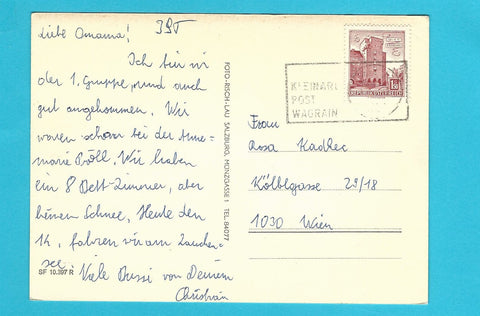 Liebe Omama! 395
Ich bin in
der 1. Gruppe, und auch
gut angekommen. Wir
waren schon bei der Anne-
marie Pröll. Wir haben
ein 8 Bett-Zimmer, aber
keinen Schnee. Heute den
14. fahren wir am Zauchen-
see. Viele Bussi von Deinem
Christian
SF 10.397 R
FOTO-RISCH-LAU SALZBURG, MÜNZGASSE 1 TEL. 84077
KLEINARL
POST
WAGRAIN
REPUBLIK ÖSTERREICH
Frau
Rosa Kadlec
Kölblgasse 29/18
1030 Wien